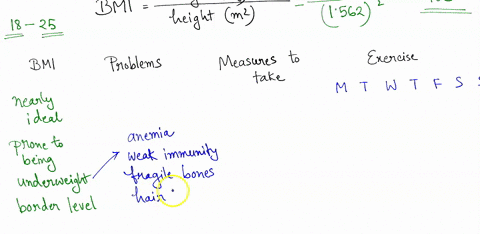 BMI =
height (m²)
(1.562)²
18 - 25
BMI Problems Measures to take Exercise
M T W T F S
nearly ideal
prone to being underweight
border level
anemia
weak immunity
fragile bones
hair